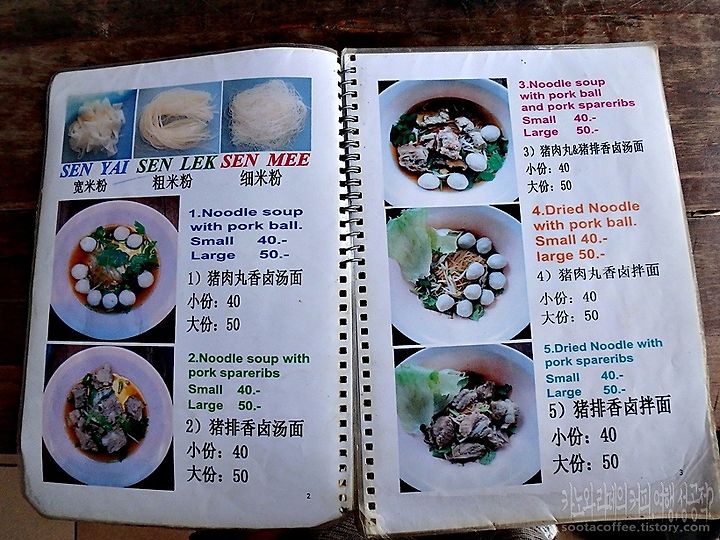 SEN YAI SEN LEK SEN MEE
宽米粉 粗米粉 细米粉
1.Noodle soup
with pork ball.
Small 40.-
Large 50.-
1）猪肉丸香卤汤面
小份：40
大份：50
2.Noodle soup with
pork spareribs
Small 40.-
Large 50.-
2）猪排香卤汤面
小份：40
大份：50
2
3.Noodle soup
with pork ball
and pork spareribs
Small 40.-
Large 50.-
3）猪肉丸&猪排香卤汤面
小份：40
大份：50
4.Dried Noodle
with pork ball.
Small 40.-
large 50.-
4）猪肉丸香卤拌面
小份：40
大份：50
5.Dried Noodle with
pork spareribs
Small 40.-
Large 50.-
5）猪排香卤拌面
小份：40
大份：50
3
sootacoffee.tistory.com